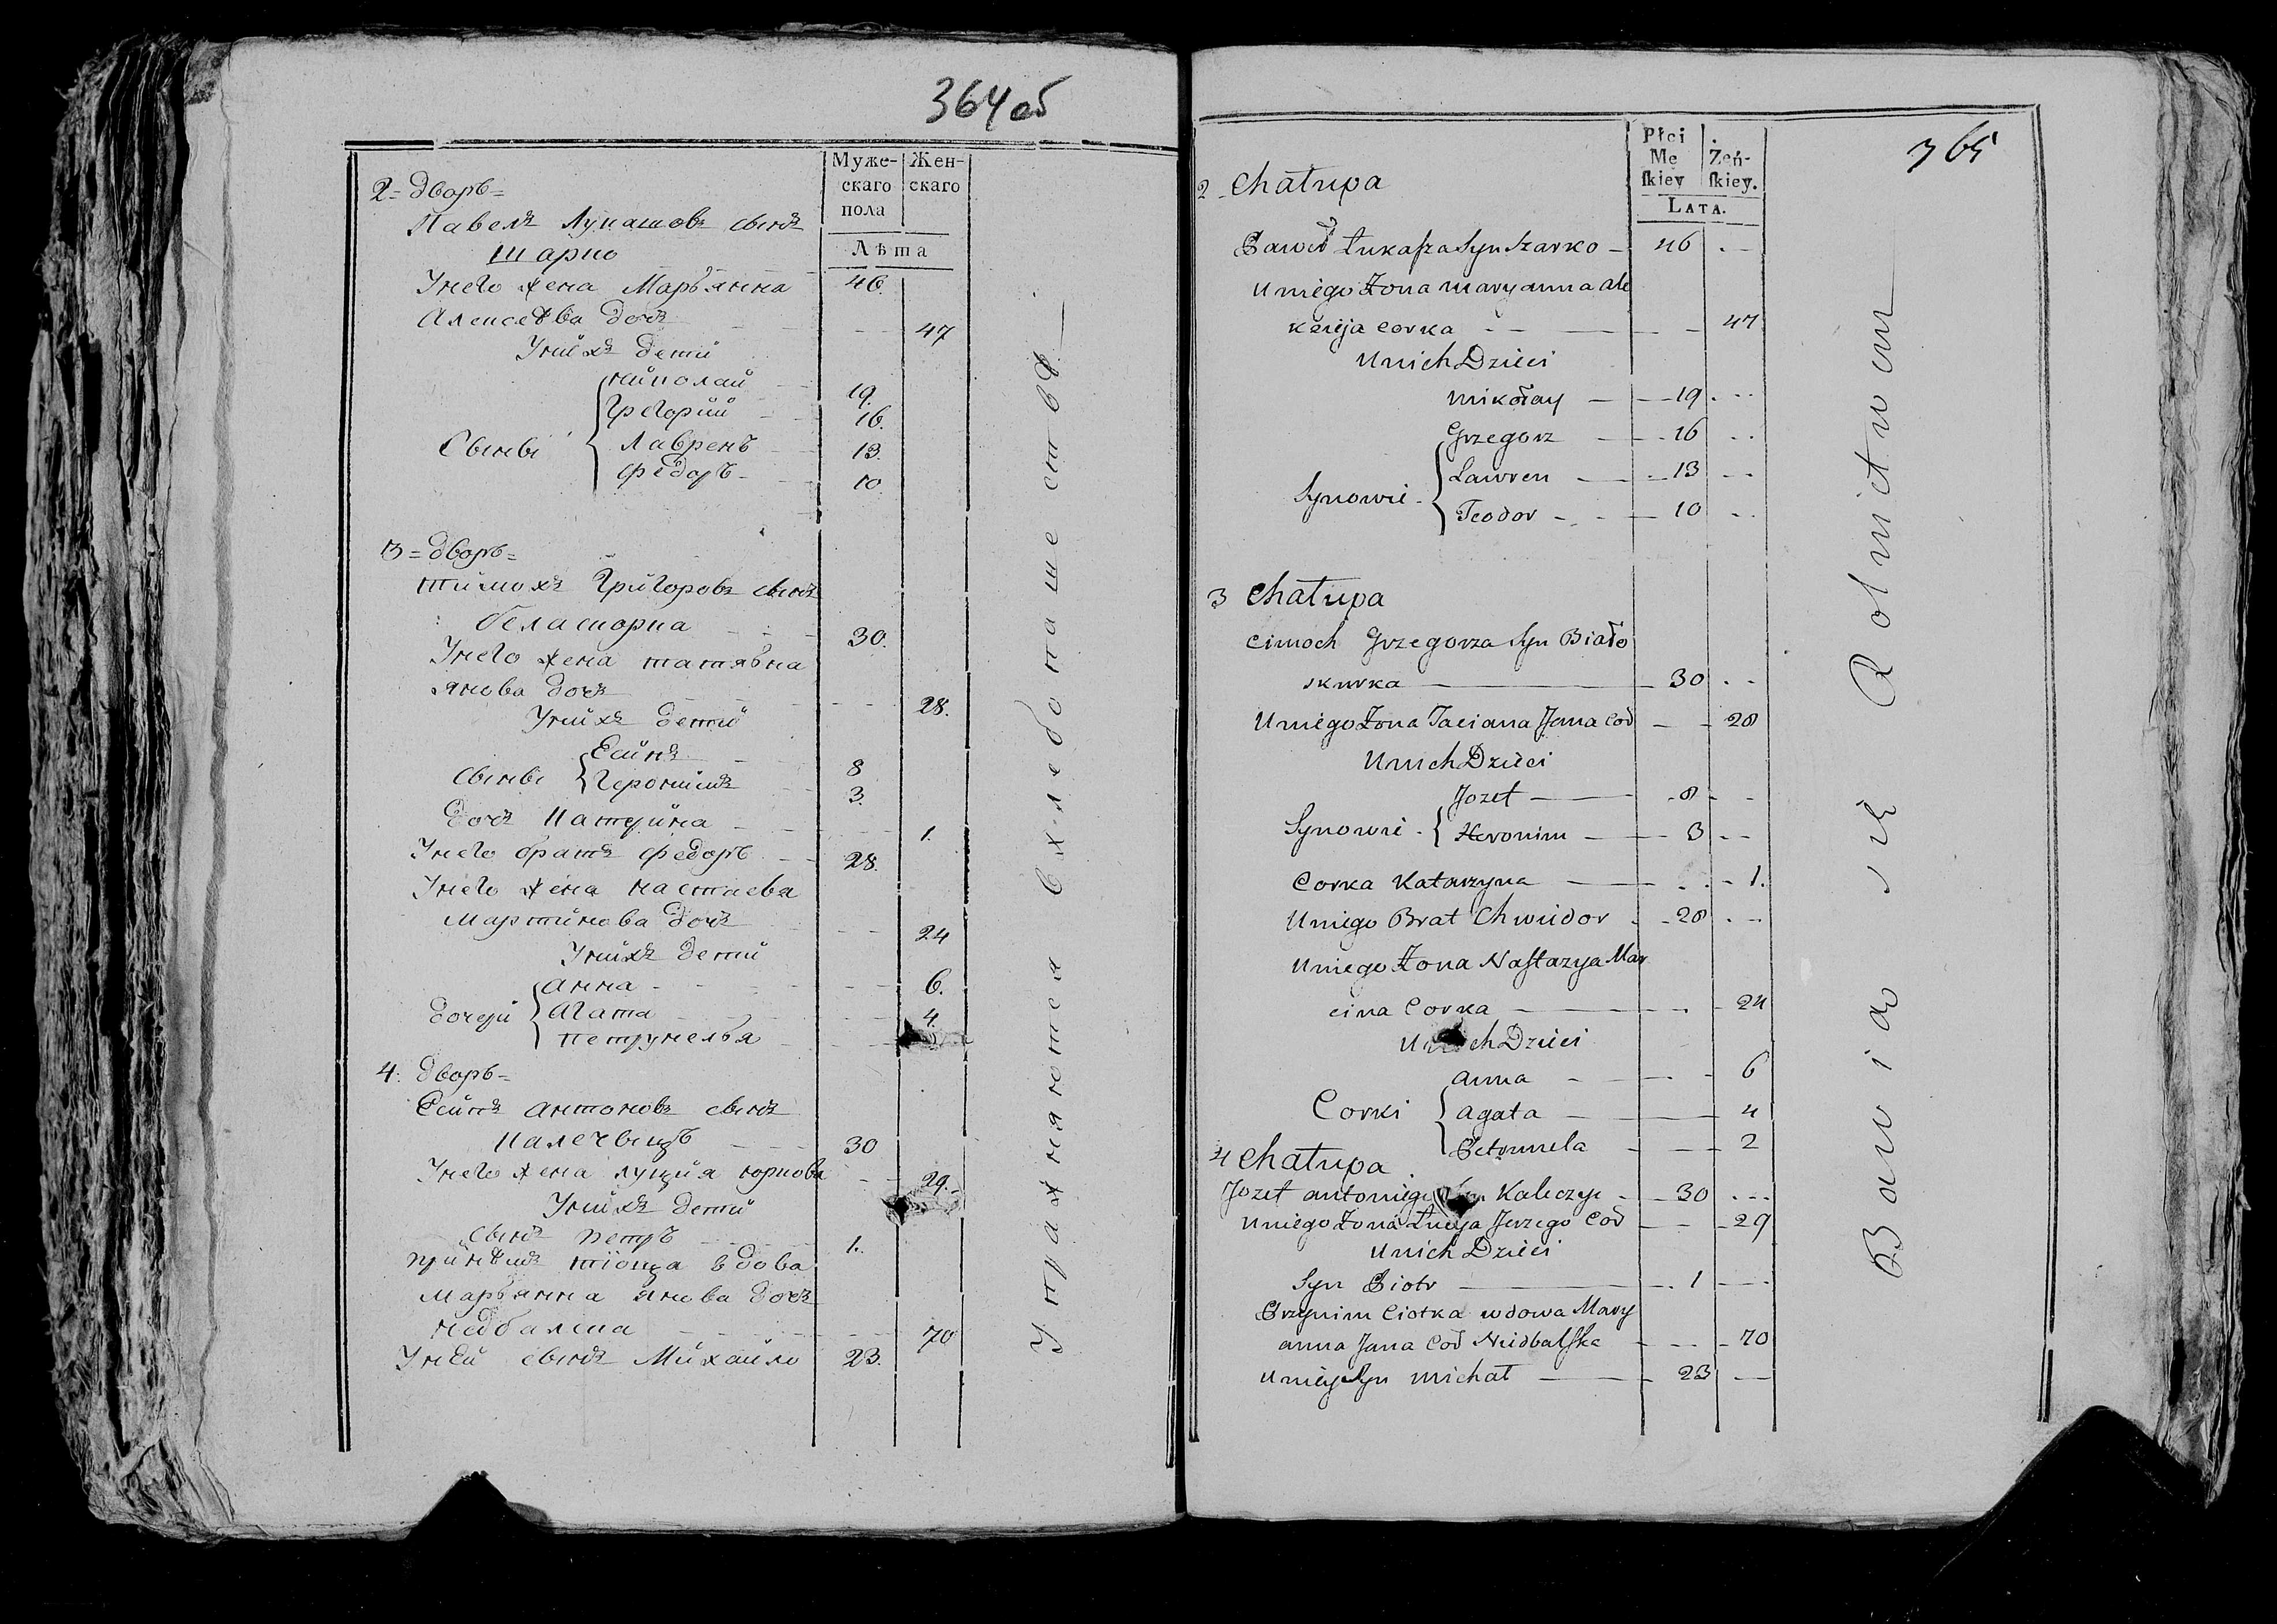 364 об
Муже-
скаго
пола
Жен-
скаго
Лѣта
2 = дворъ =
Павелъ Лукашовъ сынъ
Шарко 46.
У него жена Марьянна
Алексеева дочъ 47
У нихъ дети
Николай 19.
Сыны
Грегорий 16.
Лавренъ 13.
Федоръ 10
3 = дворъ =
Тимохъ Григоровъ сынъ
Беласкорка 30.
У него жена Татяна
Янова дочъ 28.
У нихъ дети
Сыны
Есипъ 8
Геронимъ 3.
Дочъ Катерина 1.
У него братъ Федоръ 28.
У него жена Настасья
Мартинова дочъ 24
У нихъ дети
Дочери
Анна 6.
Агата 4.
Петрунелья
4: дворъ =
Есипъ Антоновъ сынъ
Калечицъ 30
У него жена Луция Юркова 29.
У нихъ дети
Сынъ Петръ 1.
При немъ тіотка вдова
Марьянна Янова дочъ
Недбалска 70
У ней сынъ Михайло 23.
Упражняются в хлебопашестве
365
Płci
Mę
skiey
Żeń-
skiey.
LATA.
2 - Chałupa
Paweł Łukasza Syn Szarko 46
U niego Żona Maryanna Ale
kseija Corka 47
U nich Dzieci
Mikołay 19
Synowie
Grzegorz 16
Lawren 13
Teodor 10
3 Chałupa
Cimoch Grzegorza Syn Biało
skurka 30
U niego Żona Taciana Jana Cod 28
U nich Dzieci
Synowie
Jozef 8
Heronim 3
Corka Katarzyna 1.
U niego Brat Chwiedor 28
U niego Żona Nastazya Mar
cina Corka 24
U nich Dzieci
Corki
Anna 6
Agata 4
Petrunela 2
4 Chałupa
Jozef Antoniego Syn Kaleczyc 30
U niego Żona Łucya Jerzego Cod 29
U nich Dzieci
Syn Piotr 1
Przynim Ciotka wdowa Mary
anna Jana Cod Niedbalska 70
U niey Syn Michał 23
Bawią się Rolnictwem